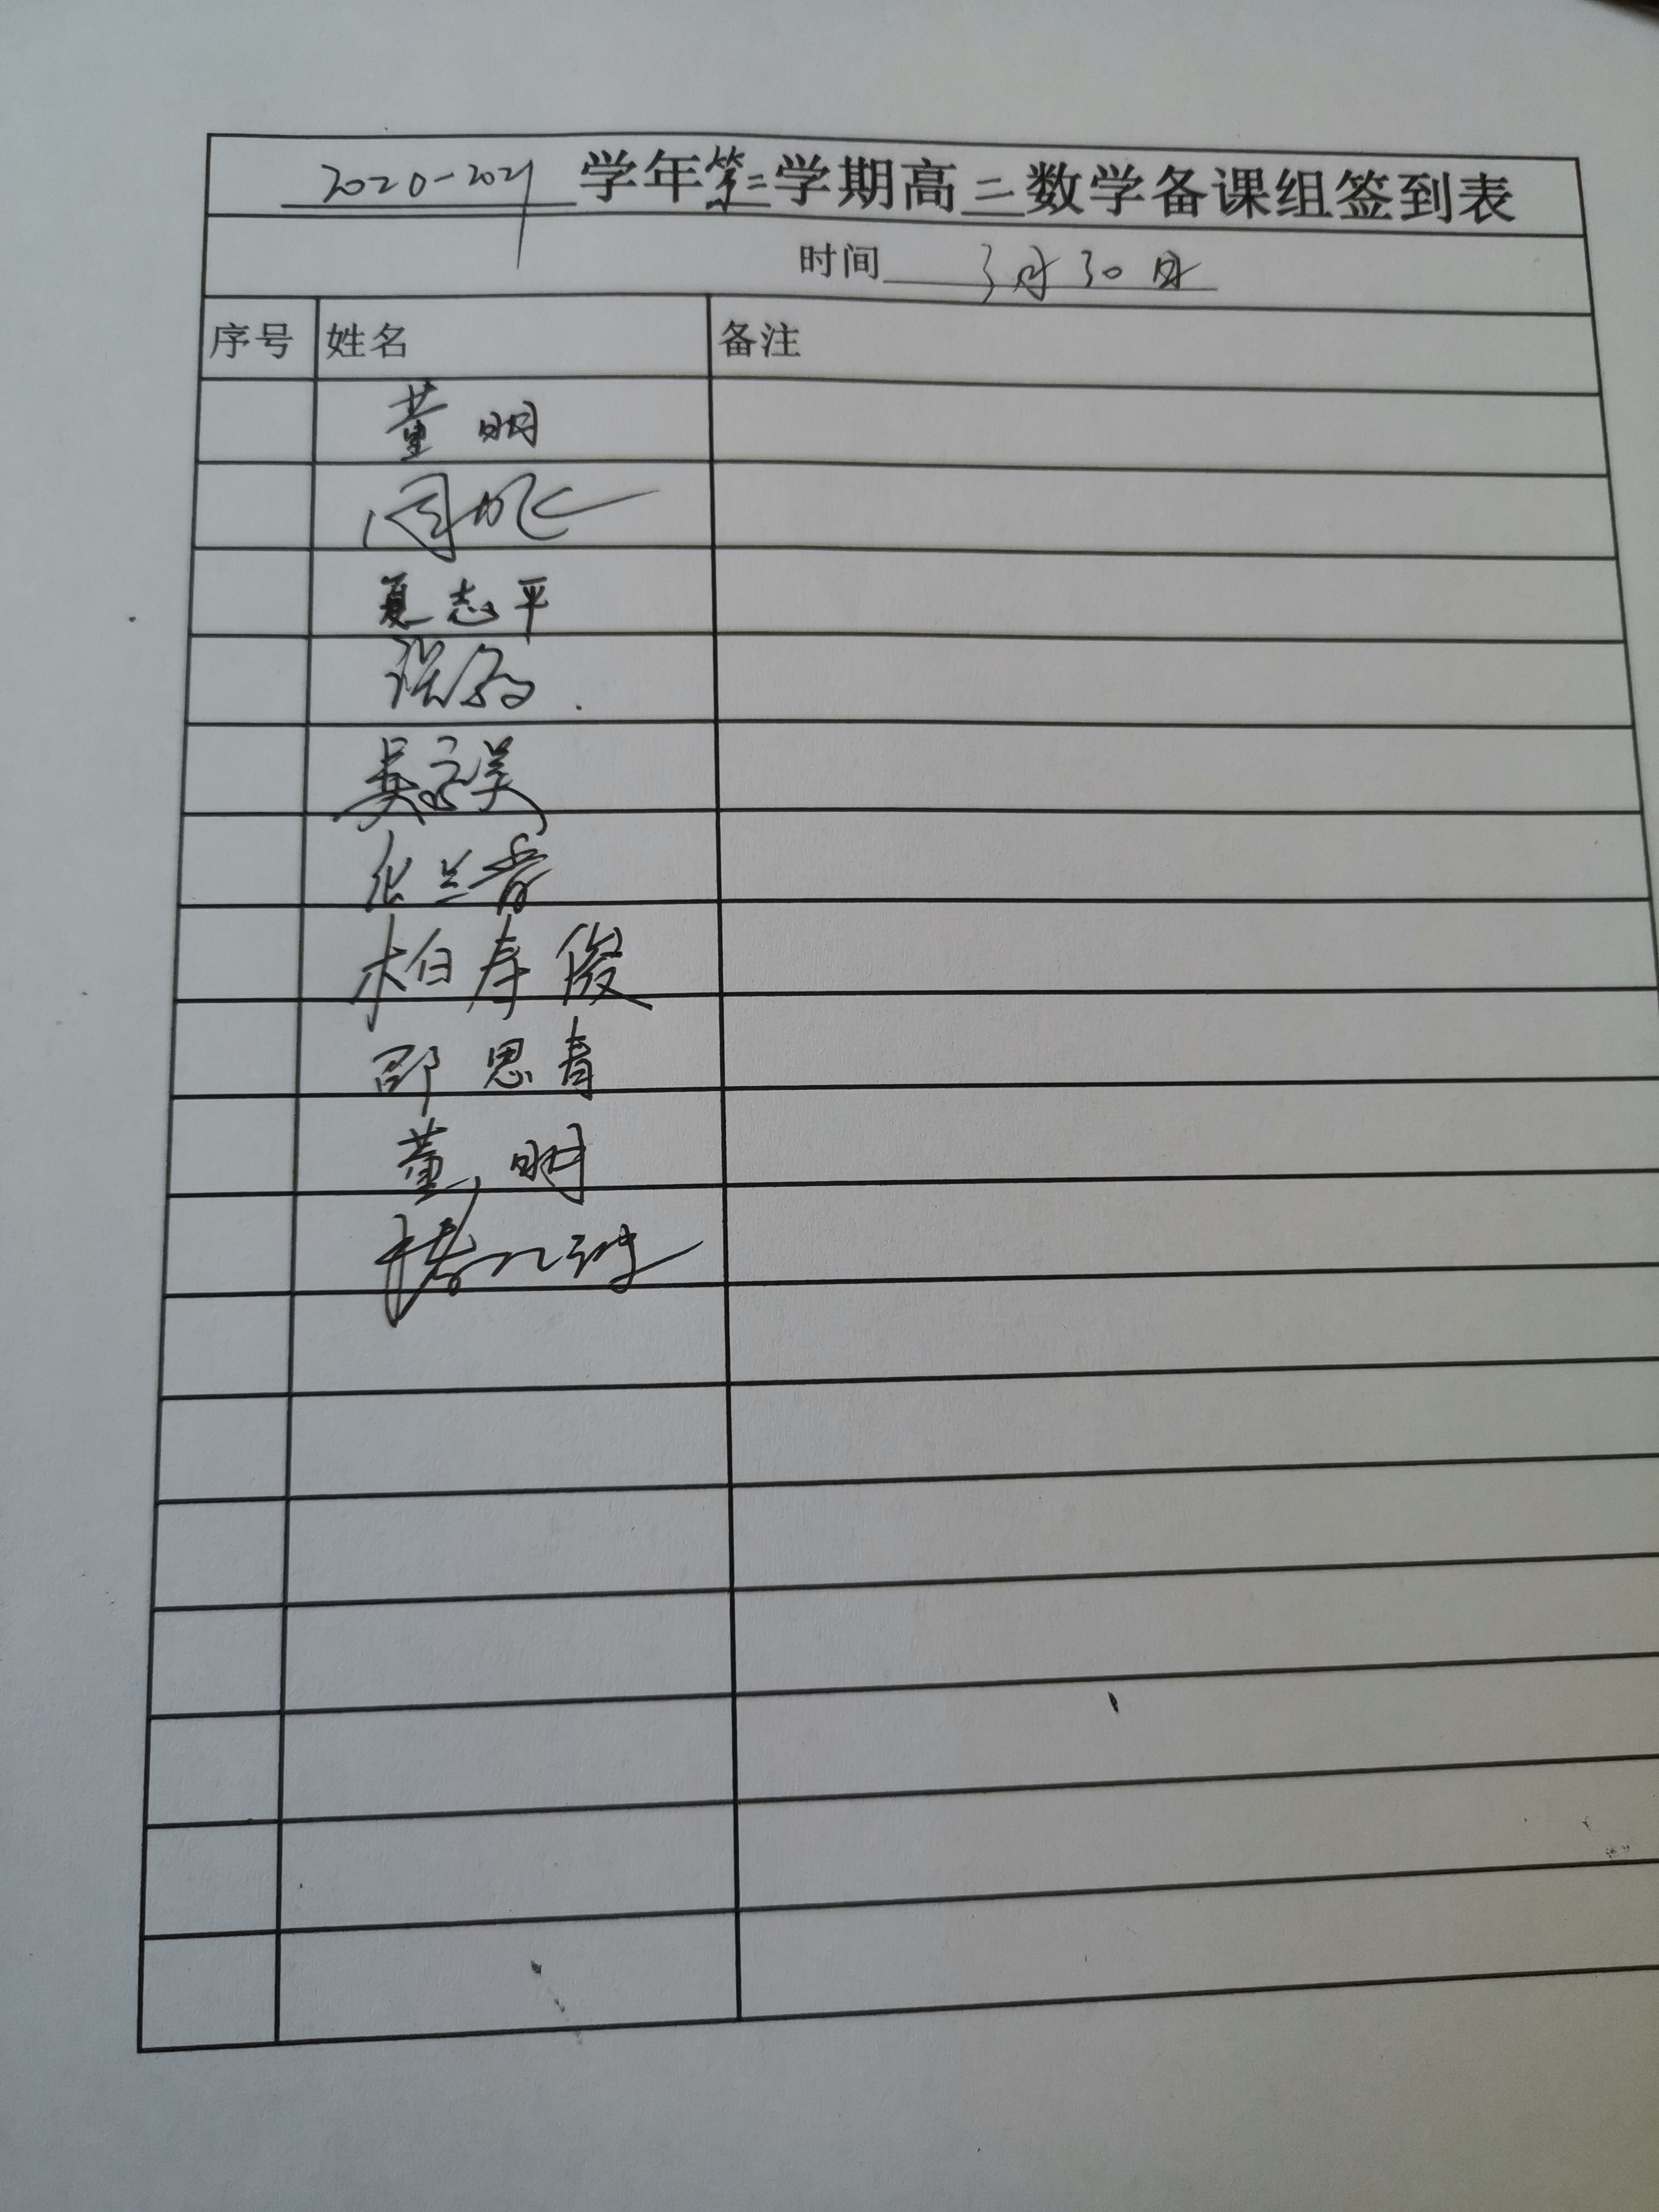 2020-2021学年第二学期高二数学备课组签到表
时间 3月30日
序号 姓名 备注
董明
周飞
夏志平
吴云美
张兰香
柏寿俊
邵思青
董明